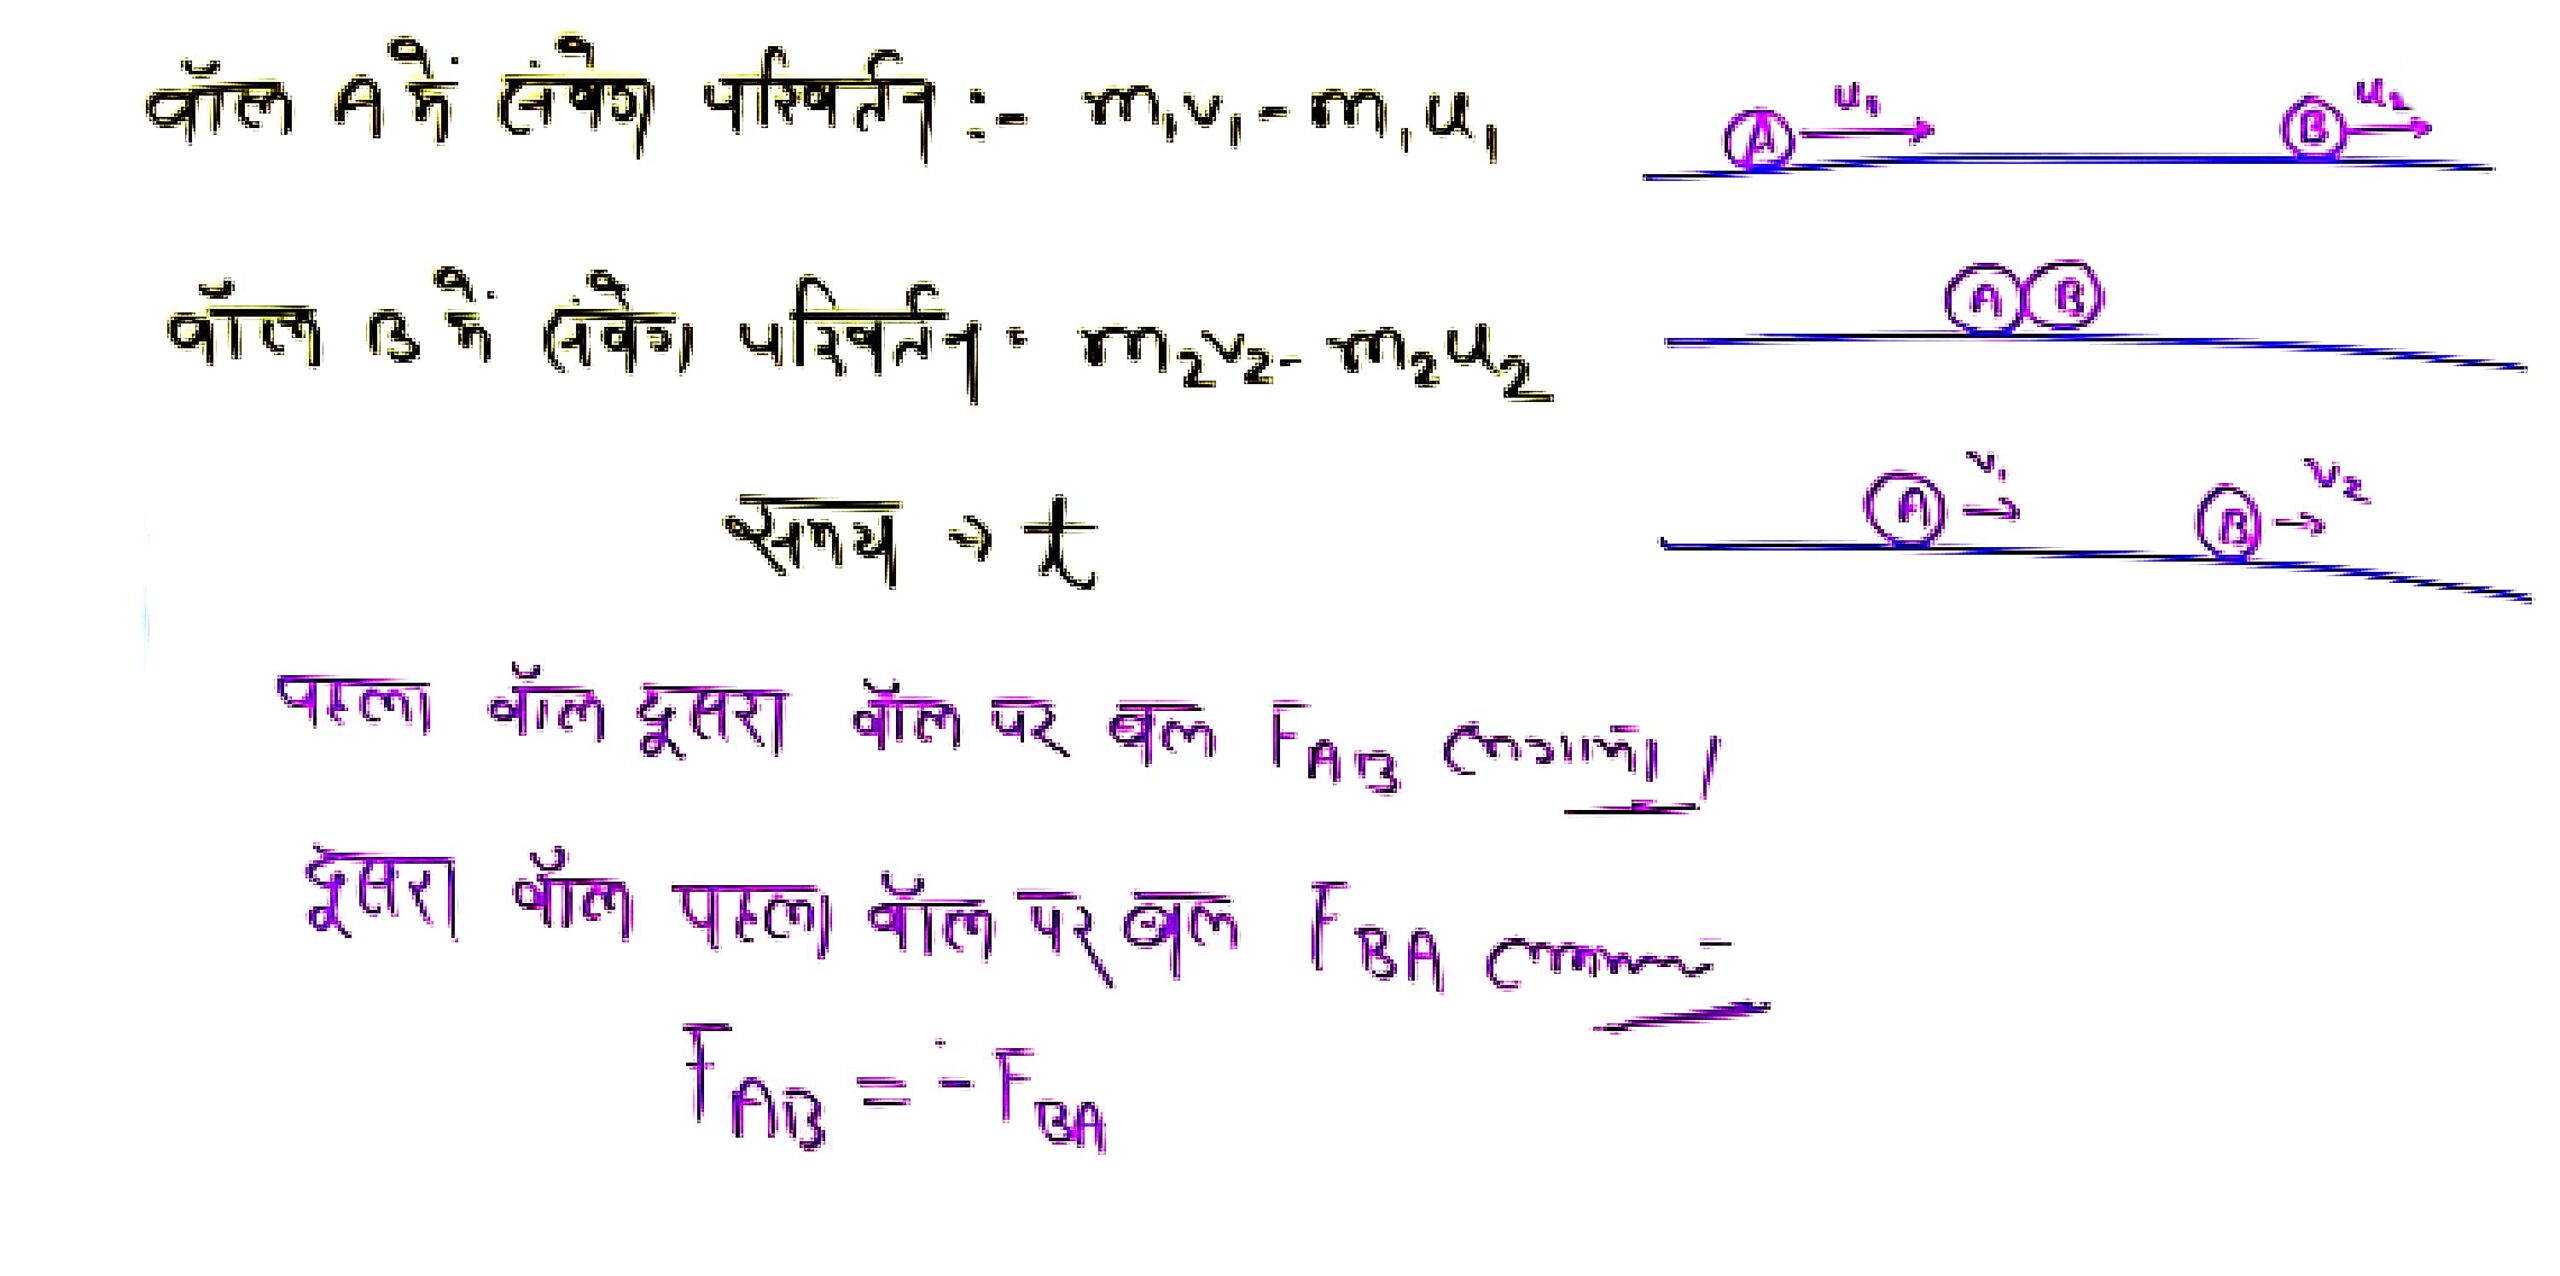 बॉल A में संवेग परिवर्तन :- m₁v₁ - m₁u₁
बॉल B में संवेग परिवर्तन : m₂v₂ - m₂u₂
समय → t
पहला बॉल दूसरा बॉल पर बल F_AB
दूसरा बॉल पहला बॉल पर बल F_BA
F_AB = - F_BA
A u₁ B u₂
A B
A v₁ B v₂